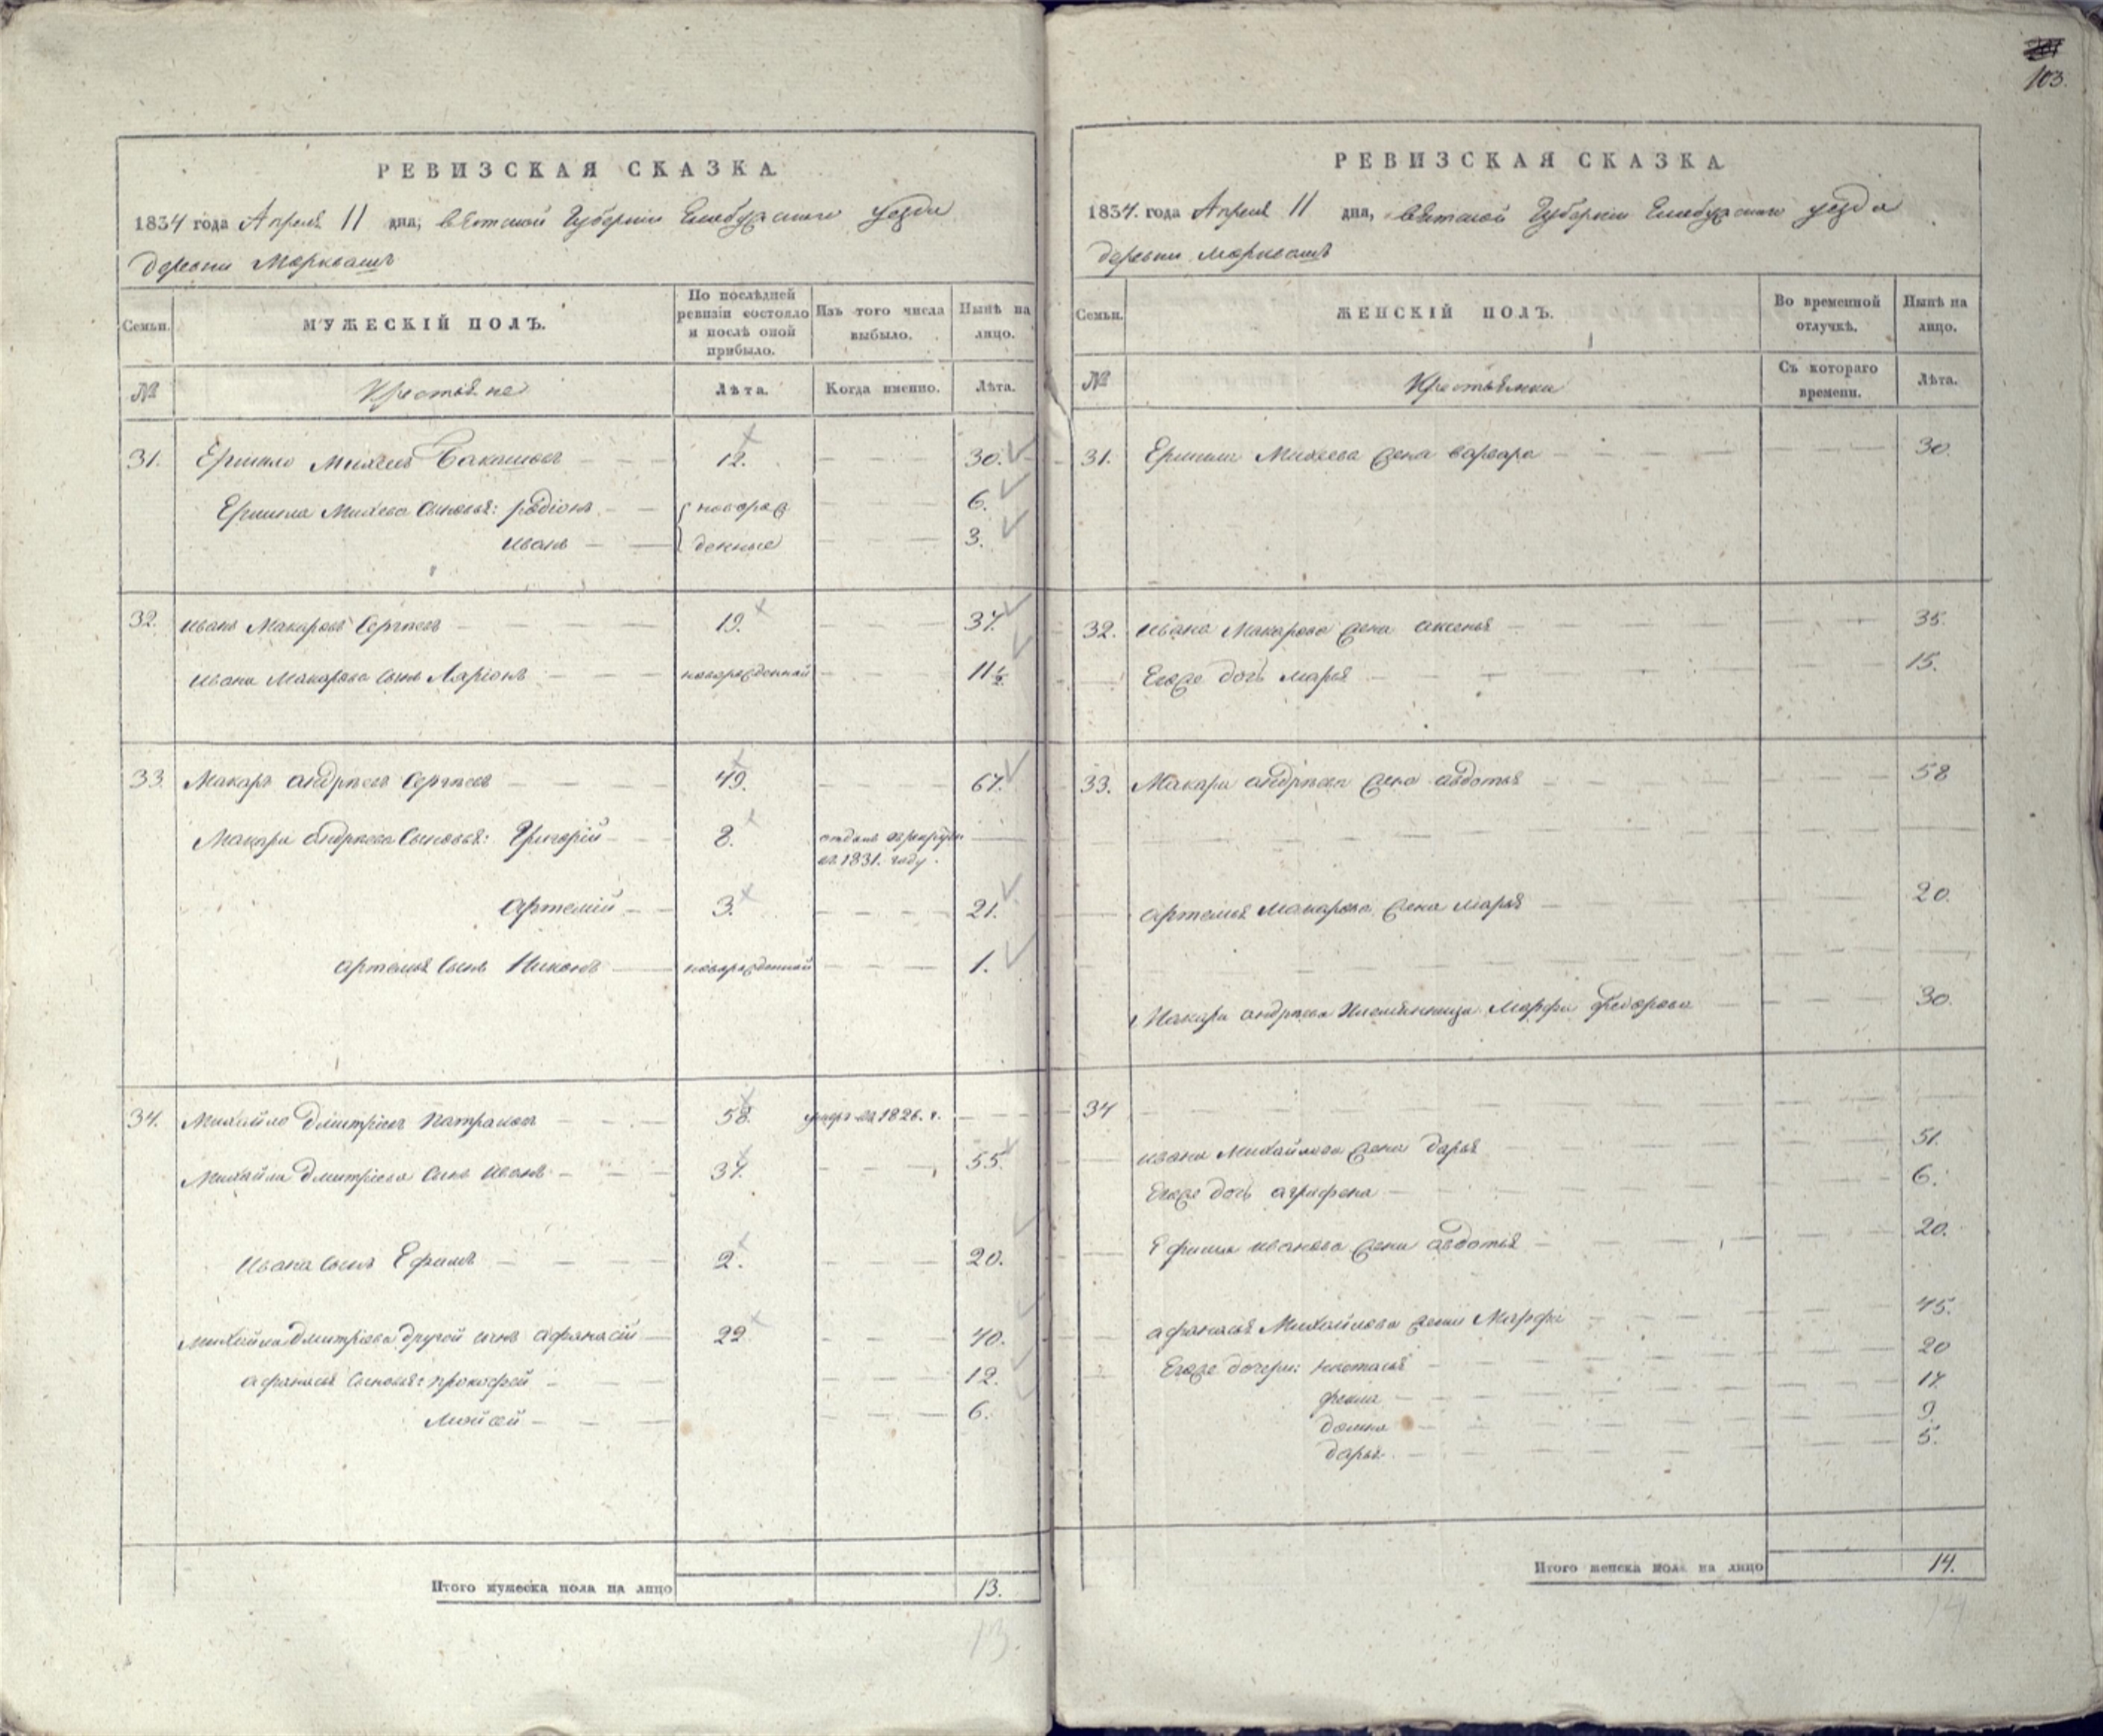 103.
РЕВИЗСКАЯ СКАЗКА
1834 года Апреля 11 дня, Вятской Губернии Елабужского уезда
деревни Моркваши
Семьи.
МУЖЕСКІЙ ПОЛЪ.
По послѣдней ревизіи состояло и послѣ оной прибыло.
Изъ того числа выбыло.
Нынѣ на лицо.
№
Крестьяне
Лѣта.
Когда именно.
Лѣта.
31. Ермило Михеевъ 12. 30.
Ермила Михеева сыновья: родіонъ новорож 6.
иванъ денные 3.
32. иванъ Макаровъ Сергѣевъ 19. 37.
ивана Макарова сынъ Ларіонъ новорожденной 11½
33. Макаръ андрѣевъ Сергѣевъ 49. 67.
Макара андрѣева сыновья: Григорій 8. отданъ в рекруты
въ 1831. году.
артемій 3. 21.
артемья сынъ Никонъ новорожденной 1.
34. Михайло дмитріевъ Патраковъ 58. умре въ 1826. г.
Михайла дмитріева сынъ иванъ 37. 55.
ивана сынъ Ефимъ 2. 20.
Михайла дмитріева другой сынъ афанасій 22 40.
афанасья сыновья: прокофей 12.
Мойсей 6.
Итого мужеска пола на лицо 13.
13.
РЕВИЗСКАЯ СКАЗКА
1834. года Апреля 11 дня, Вятской Губернии Елабужского уезда
деревни Моркваши
Семьи.
ЖЕНСКІЙ ПОЛЪ.
Во временной отлучкѣ.
Нынѣ на лицо.
№
Крестьянки
Съ котораго времени.
Лѣта.
31. Ермила Михеева жена варвара 30.
32. ивана Макарова жена аксенья 35.
Егоже дочь марья 15.
33. Макара андрѣева жена авдотья 58
артемья Макарова жена марья 20.
Макара андрѣева племянница Марфа федорова 30.
34
ивана Михайлова жена дарья 51.
Егоже дочь аграфена 6.
Ефима иванова жена авдотья 20.
афанасья Михайлова жена Марфа 45.
Егоже дочери: настасья 20
фекла 17.
домна 9.
дарья 5.
Итого женска пола на лицо 14.
14